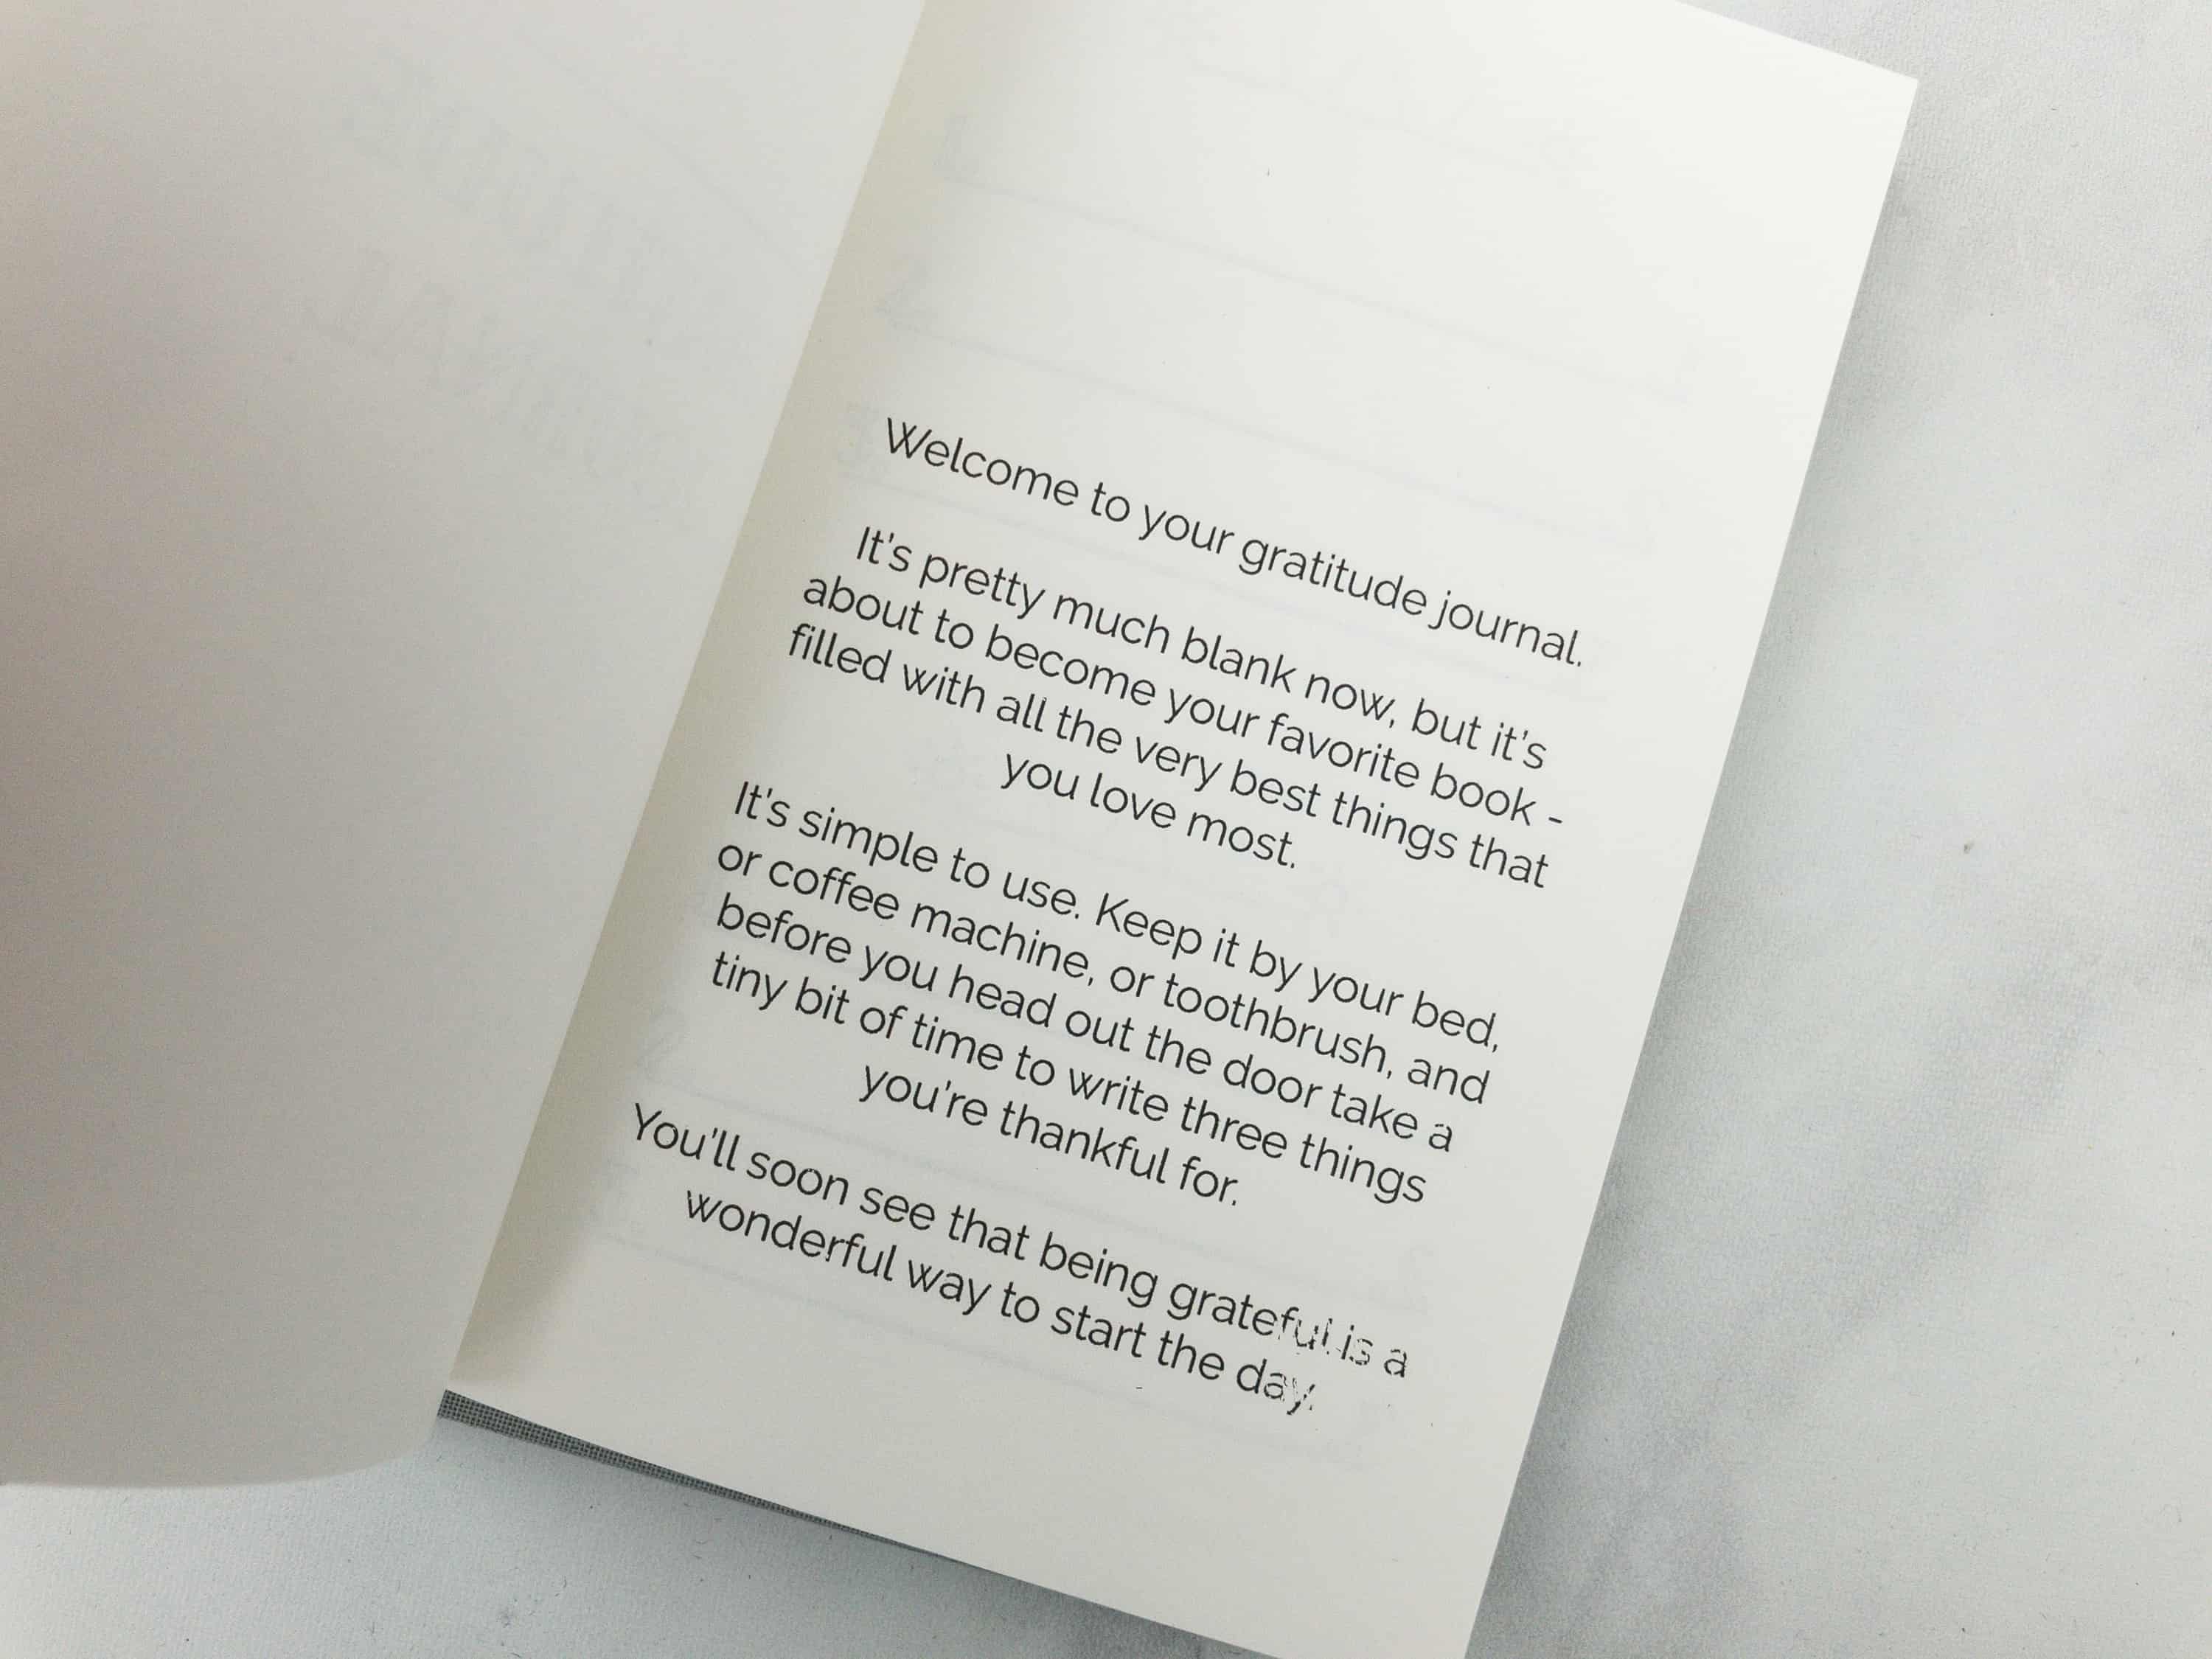 Welcome to your gratitude journal.
It's pretty much blank now, but it's
about to become your favorite book -
filled with all the very best things that
you love most.
It's simple to use. Keep it by your bed,
or coffee machine, or toothbrush, and
before you head out the door take a
tiny bit of time to write three things
you're thankful for.
You'll soon see that being grateful is a
wonderful way to start the day.